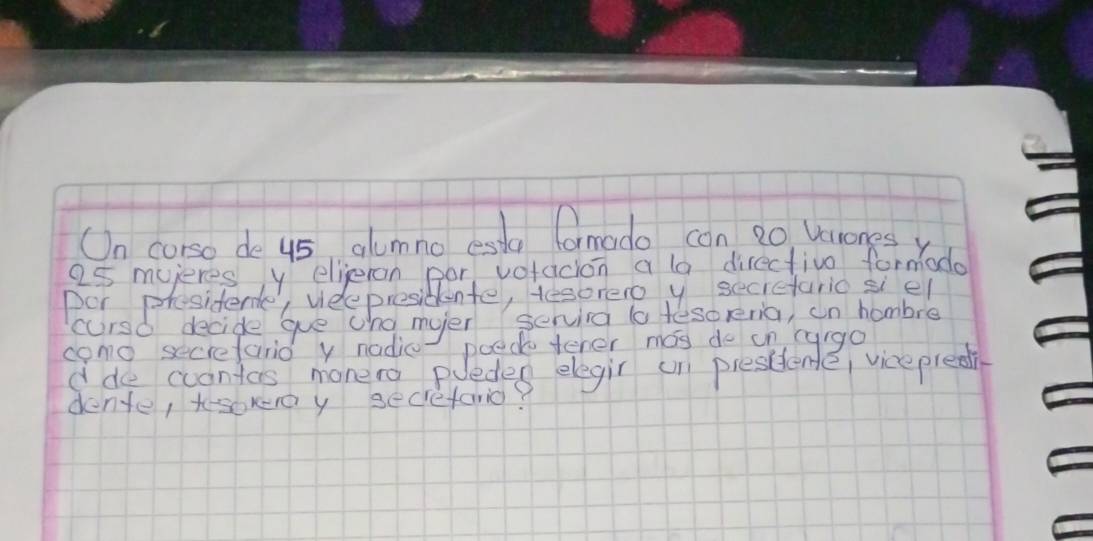 Un curso de 45 alumno esta formado con 20 varones y
25 mujeres y elijeron por votación a la directiva formado
por presidente, vicepresidente, tesorero y secretario si el
curso decide que una mujer servira la tesoreria, un hombre
como secretario y nadie puede tener más de un cargo
d de cuantas manera pueden elegir un presidente, vicepresi-
dente, tesorera y secretario?